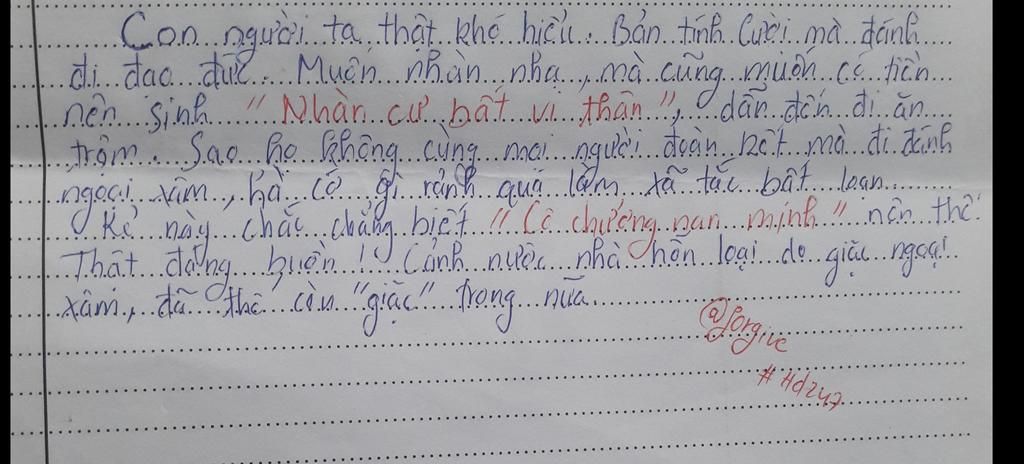 Con người ta thật khó hiểu. Bản tính lười mà đánh
đi đạo đức. Muốn nhàn nhạ, mà cũng muốn có tiền
nên sinh "Nhàn cư bất vi thân", dẫn đến đi ăn
trộm. Sao họ không cùng mọi người đoàn kết mà đi đánh
ngoại xâm, hà cớ gì rảnh quá làm xã tắc bất loạn.
Kẻ này chắc chẳng biết "Cô chưởng nan minh" nên thế.
Thật đáng buồn! Cảnh nước nhà hỗn loại do giặc ngoại
xâm, đã thế còn "giặc" trong nữa.
@forgive
#Hd247